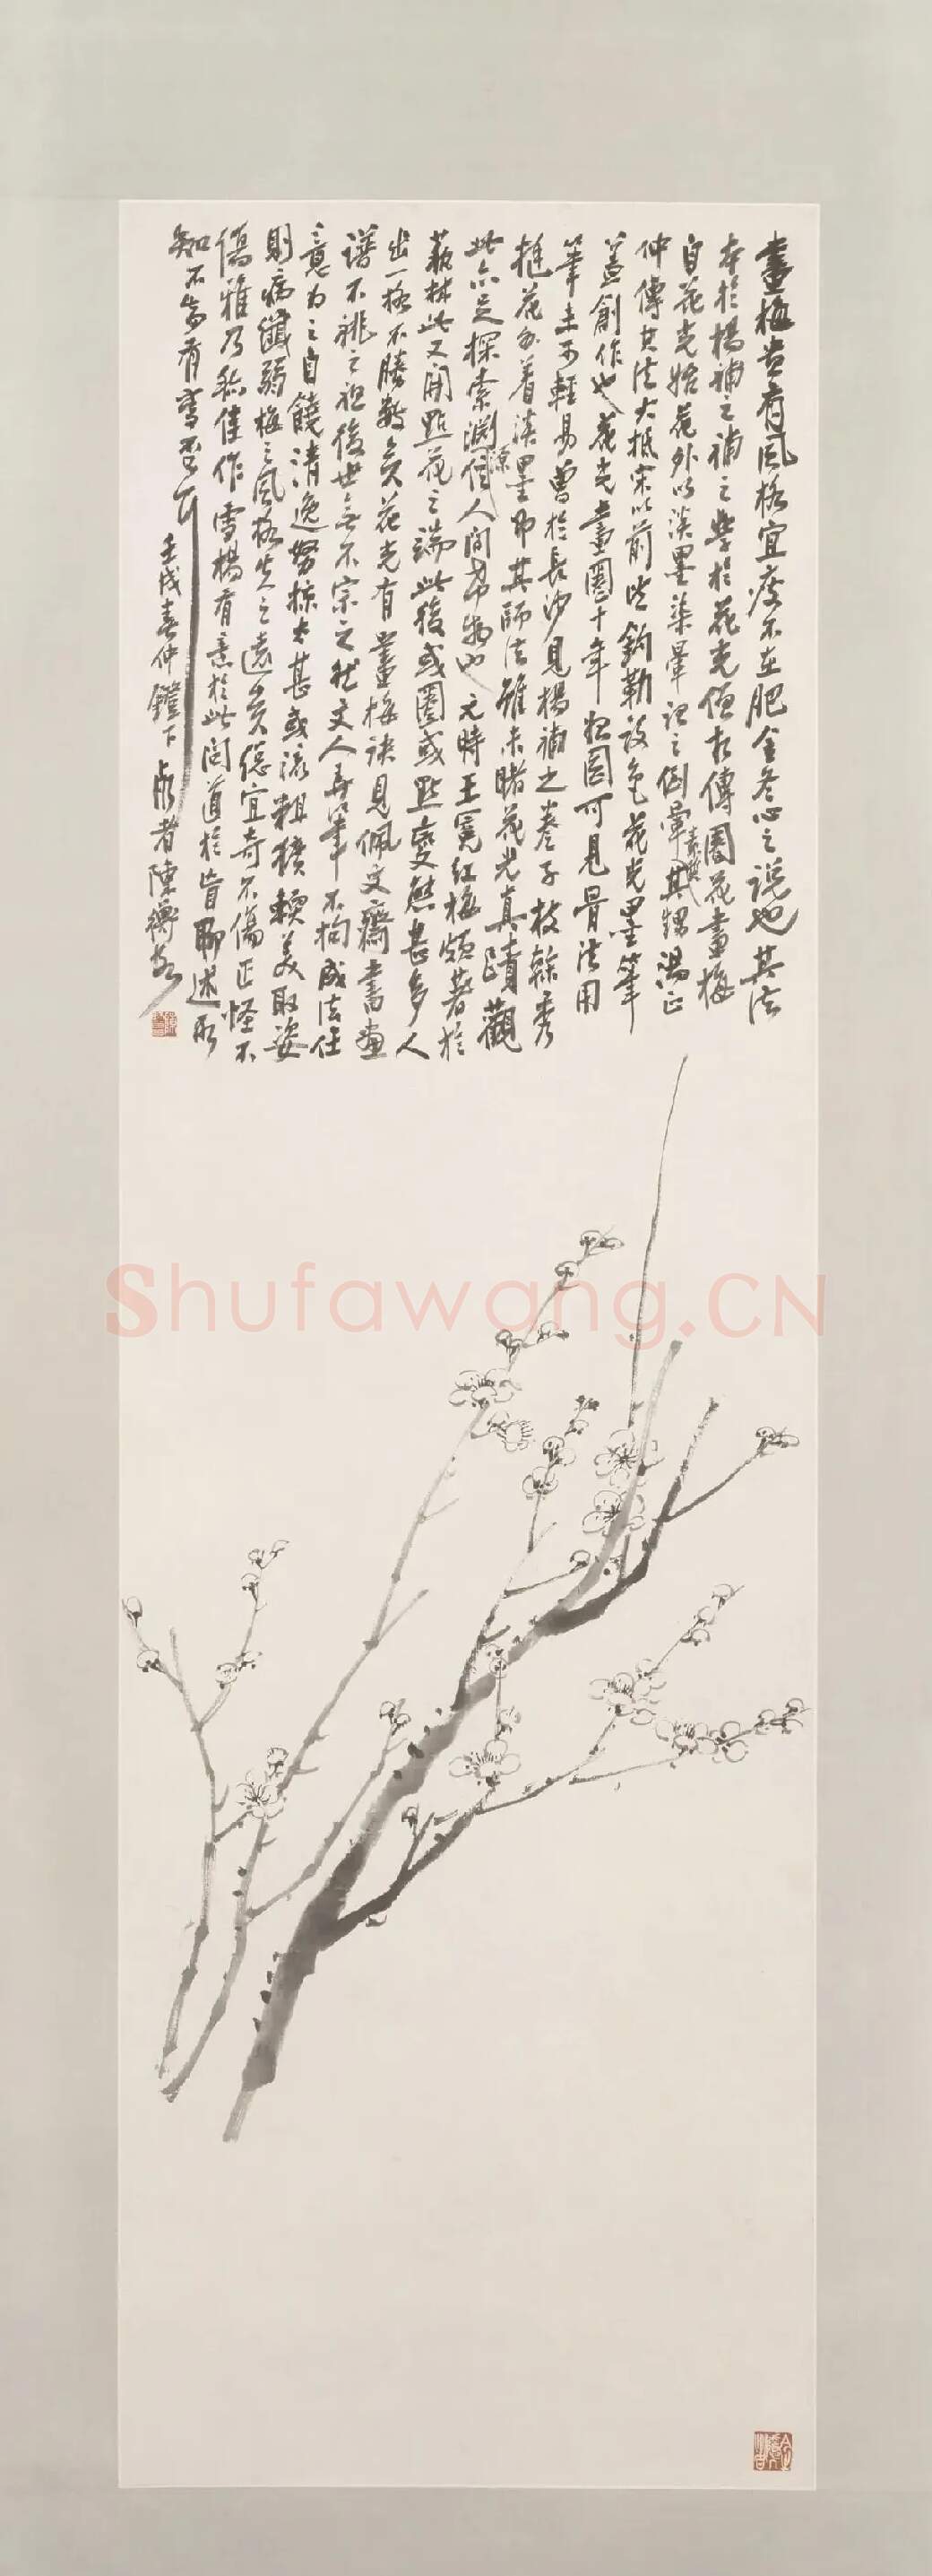 畫梅貴有風格宜瘦不在肥金冬心之說也其法
本於楊補之補之學於花光僧相傳圈花畫梅
自花光始花外以淡墨染暈記之倒暈素質其甥湯正
仲傳其法大抵宋以前皆鉤勒設色花光墨筆
蓋創作也花光畫圈千年猶圓可見骨法用
筆未可輕易曾於長沙見楊補之卷子枝榦秀
挺花外着淡墨即其師法雖未睹花光真蹟觀
此亦足探索淵源人間希物也元時王冕紅梅頗著於
藝林此又開點花之端此後或圈或點變態甚多人
出一格不勝數矣花光有畫梅訣見佩文齋書畫
譜不祧之祖後世無不宗之然文人弄筆不拘成法任
意為之自饒清逸努掠太甚或流粗獷輭美取姿
則病纖弱梅之風格失之遠矣總宜奇不傷正怪不
傷雅乃稱佳作雪楊有意於此問道於盲聊述所
知不知有當否耳
壬戌春仲鐙下 陳
Shufawang.CN